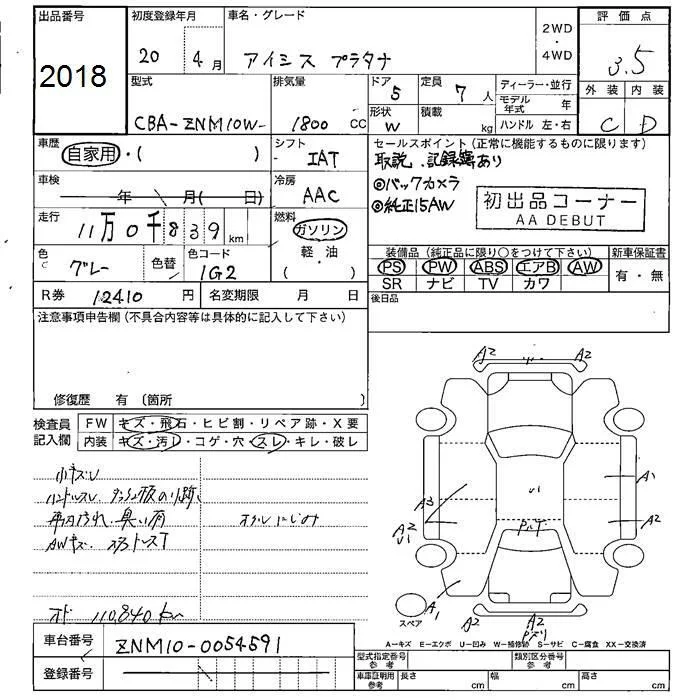 出品番号
2018
初度登録年月
20 4月
車名・グレード
アイシス プラタナ
2WD
・
4WD
評価点
3.5
外装 内装
C D
型式
CBA-ZNM10W-
排気量
1800 CC
ドア
5
定員
7人
形状
W
積載
kg
ディーラー・並行
モデル年式 年
ハンドル 左・右
車歴
自家用・( )
シフト
IAT
セールスポイント(正常に機能するものに限ります)
取説、記録簿あり
◎バックカメラ
◎純正15AW
初出品コーナー
AA DEBUT
車検
年 月( 日)
冷房
AAC
走行
11万0千839km
燃料
ガソリン
軽・油
( )
色
グレー
色替
色コード
1G2
装備品(純正品に限り○をつけて下さい)
PS PW ABS エアB AW
SR ナビ TV カワ
新車保証書
有・無
R券 12410円
名変期限 月 日
後日品
注意事項申告欄(不具合内容等は具体的に記入して下さい)
修復歴 有 (箇所 )
検査員記入欄
FW キズ・飛石・ヒビ割・リペア跡・X要
内装 キズ・汚レ・コゲ・穴・スレ・キレ・破レ
小キズU
ハンドルスレ
車内汚れ 臭い有
オイルにじみ
AWキズ
オド 110,840 km
A2 A2
A1
U1
A3
A2
U1
A2
A1
A2 A2
スペア
A-キズ E-エクボ U-凹み W-補修跡 S-サビ C-腐食 XX-交換済
車台番号
ZNM10-0054591
登録番号
型式指定番号 参考
類別区分番号 参考
車庫証明用 参考
長さ cm
幅 cm
高さ cm